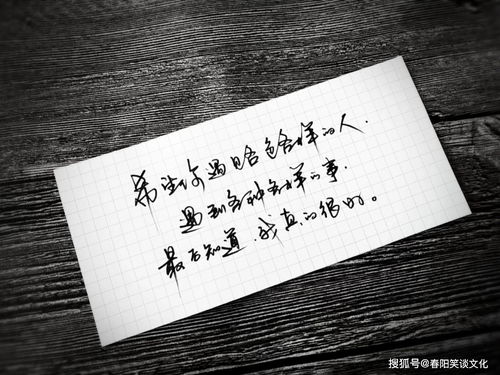 希望你遇见各色各样的人.
遇到各种各样的事.
最后知道,我真的很好。
搜狐号@春阳笑谈文化